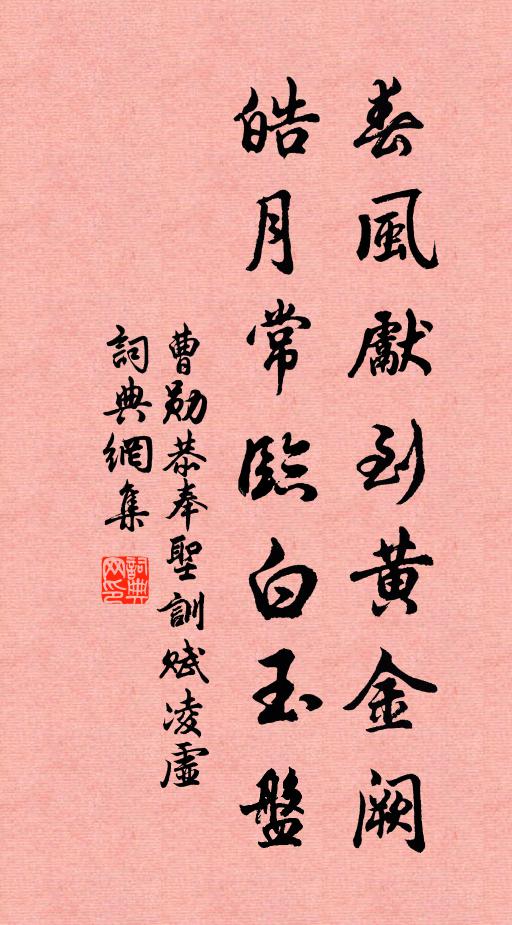 春風獻到黃金闕
皓月常臨白玉盤
曹勛恭奉聖訓賦凌虛
詞典網集
詞典網印